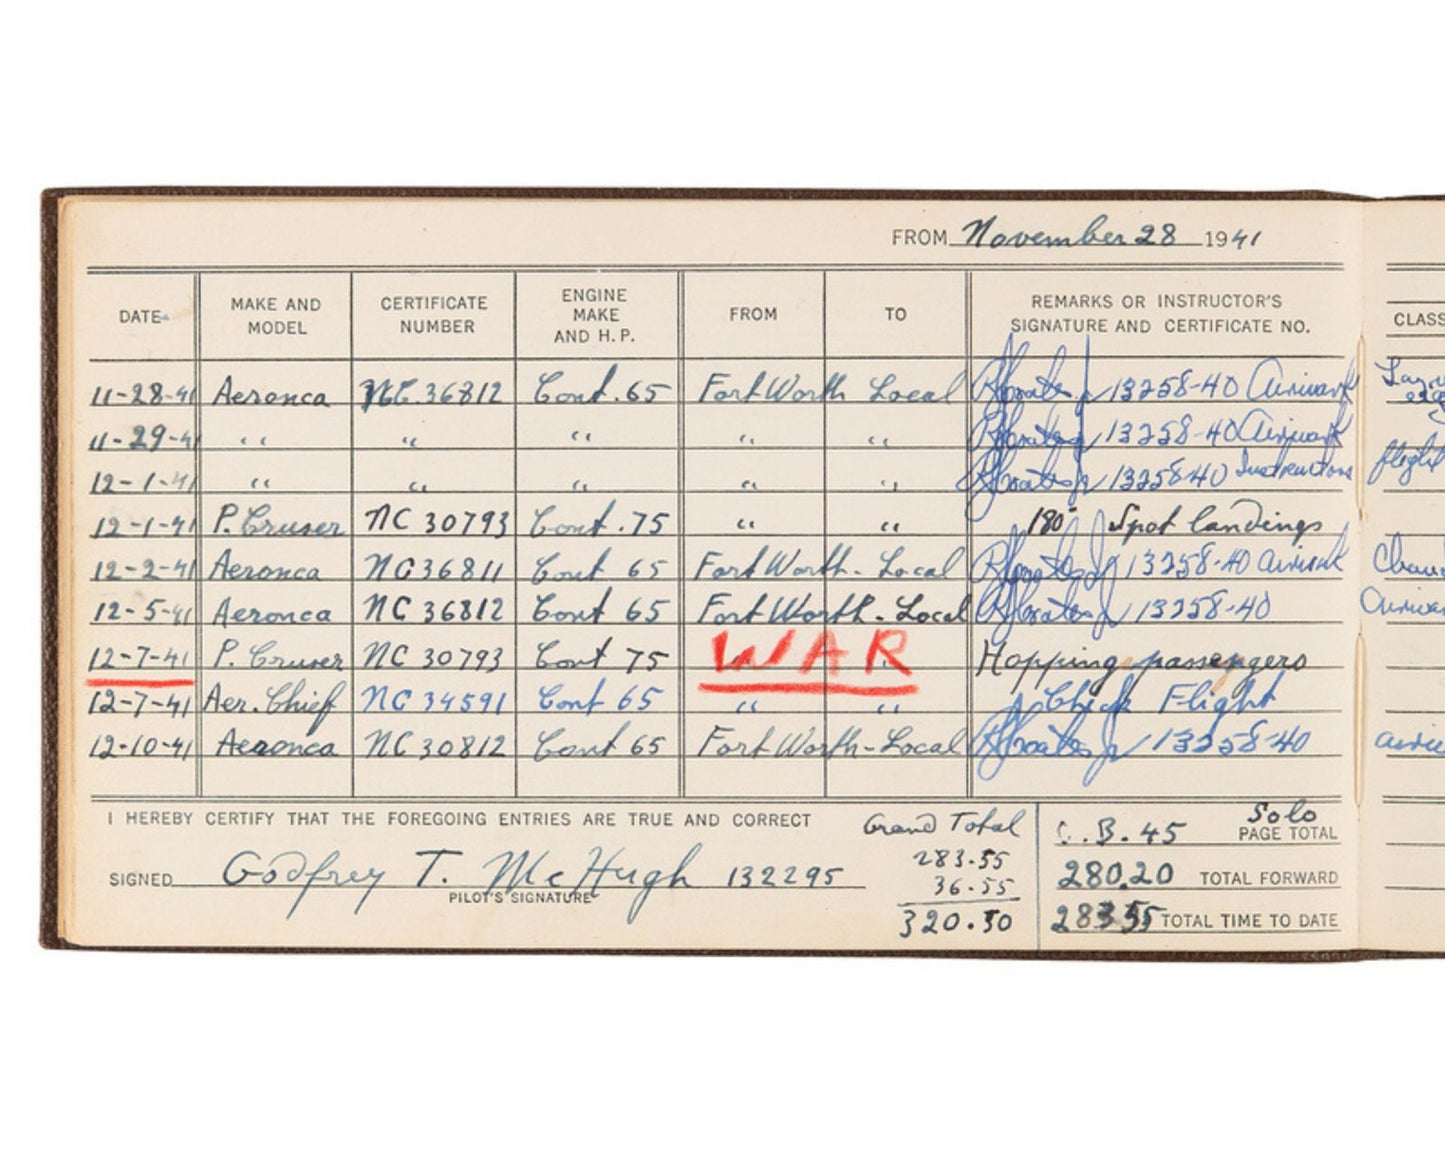 FROM November 28 1941
DATE MAKE AND MODEL CERTIFICATE NUMBER ENGINE MAKE AND H.P. FROM TO REMARKS OR INSTRUCTOR'S SIGNATURE AND CERTIFICATE NO. CLASS
11-28-41 Aeronca NC 36812 Cont. 65 Fort Worth Local 13258-40 Airwork
11-29-41 " " " " " 13258-40 Airwork
12-1-41 " " " " " 13258-40 Instructions flight
12-1-41 P. Cruser NC 30793 Cont. 75 " " 180° Spot landings
12-2-41 Aeronca NC 36811 Cont 65 Fort Worth - Local 13258-40 airwork
12-5-41 Aeronca NC 36812 Cont 65 Fort Worth - Local 13258-40
12-7-41 P. Cruser NC 30793 Cont 75 WAR Hopping passengers
12-7-41 Aer. Chief NC 34591 Cont 65 " " Check Flight
12-10-41 Aeronca NC 30812 Cont 65 Fort Worth - Local 13258-40
I HEREBY CERTIFY THAT THE FOREGOING ENTRIES ARE TRUE AND CORRECT Grand Total B. 45 Solo PAGE TOTAL
283.55
SIGNED Godfrey T. McHugh 132295 36.55 280.20 TOTAL FORWARD
PILOT'S SIGNATURE
320.50 283.55 TOTAL TIME TO DATE